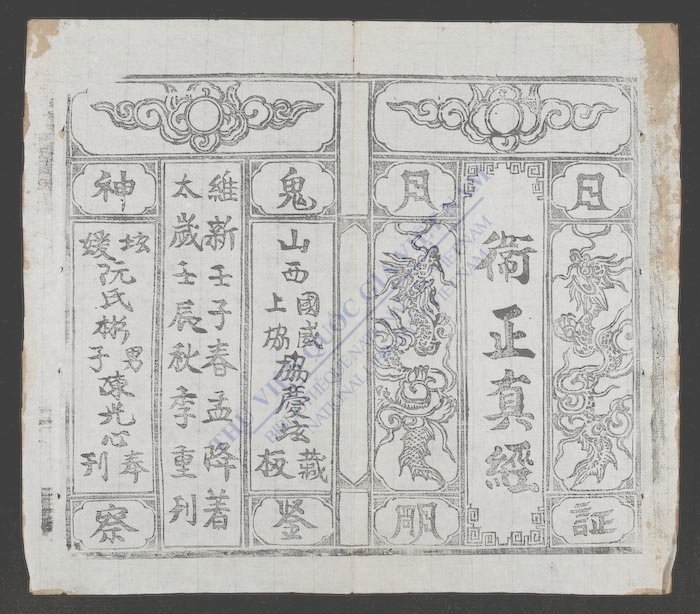 日
証
衞正真經
月
明
鬼
鑒
山西國威
上協協慶壇藏
板
維新壬子春孟降著
太歲壬辰秋季重刊
神
察
壇男奉
媛阮氏彬子陳光心刊
THƯ VIỆN QUỐC GIA VIỆT NAM
BIBLIOTHEQUE NATIONALE DU VIETNAM
NATIONAL LIBRARY OF VIETNAM